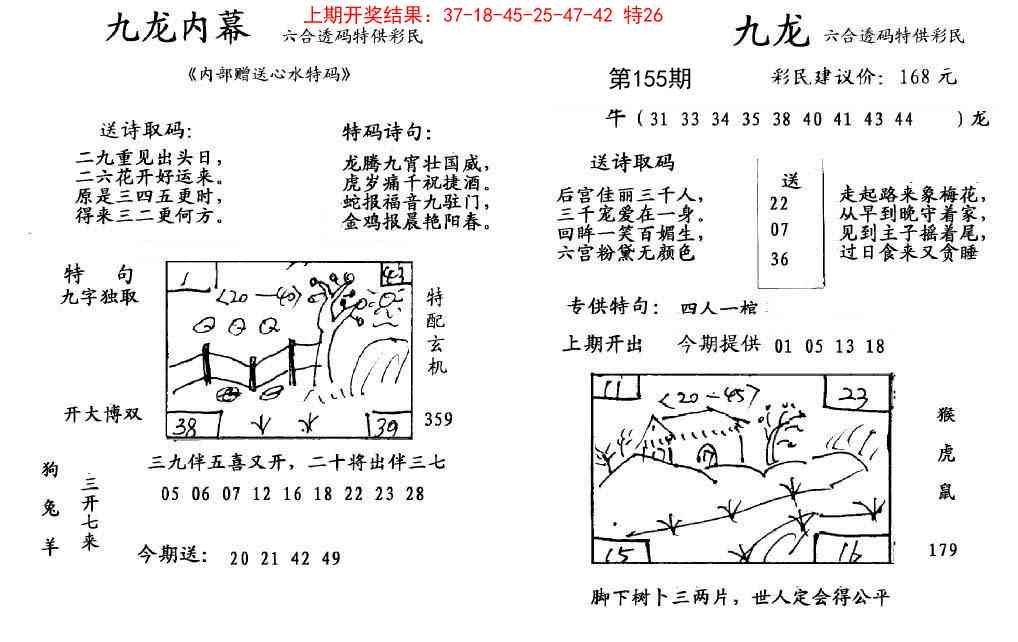 上期开奖结果：37-18-45-25-47-42 特26
九龙内幕 六合透码特供彩民
《内部赠送心水特码》
送诗取码：
二九重见出头日，
二六花开好运来。
原是三四五更时，
得来三二更何方。
特码诗句：
龙腾九宵壮国威，
虎岁痛千祝捷酒。
蛇报福音九驻门，
金鸡报晨艳阳春。
特 句
九字独取
开大博双
1
43
<20—40>
38
39
特配玄机
359
三九伴五喜又开，二十将出伴三七
狗兔羊
三开七来
05 06 07 12 16 18 22 23 28
今期送： 20 21 42 49
九龙 六合透码特供彩民
第155期 彩民建议价：168元
牛（31 33 34 35 38 40 41 43 44 ）龙
送诗取码
后宫佳丽三千人，
三千宠爱在一身。
回眸一笑百媚生，
六宫粉黛无颜色
送
22
07
36
走起路来象梅花，
从早到晚守着家，
见到主子摇着尾，
过日食来又贪睡
专供特句： 四人一棺
上期开出 今期提供 01 05 13 18
11
23
<20—45>
15
16
猴
虎
鼠
179
脚下树卜三两片，世人定会得公平